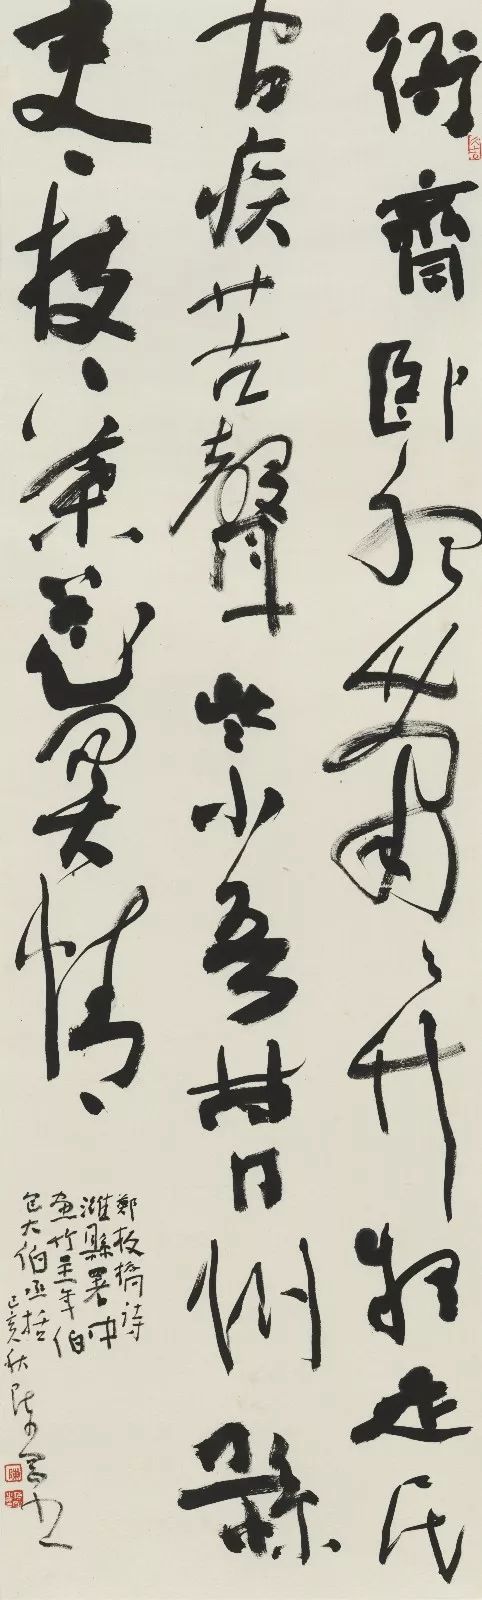 衙齋臥聽蕭〻竹疑是民
間疾苦聲些小吾曹州縣
吏一枝一葉總關情
鄭板橋詩
濰縣署中
畫竹呈年伯
包大伯丞括
己亥秋